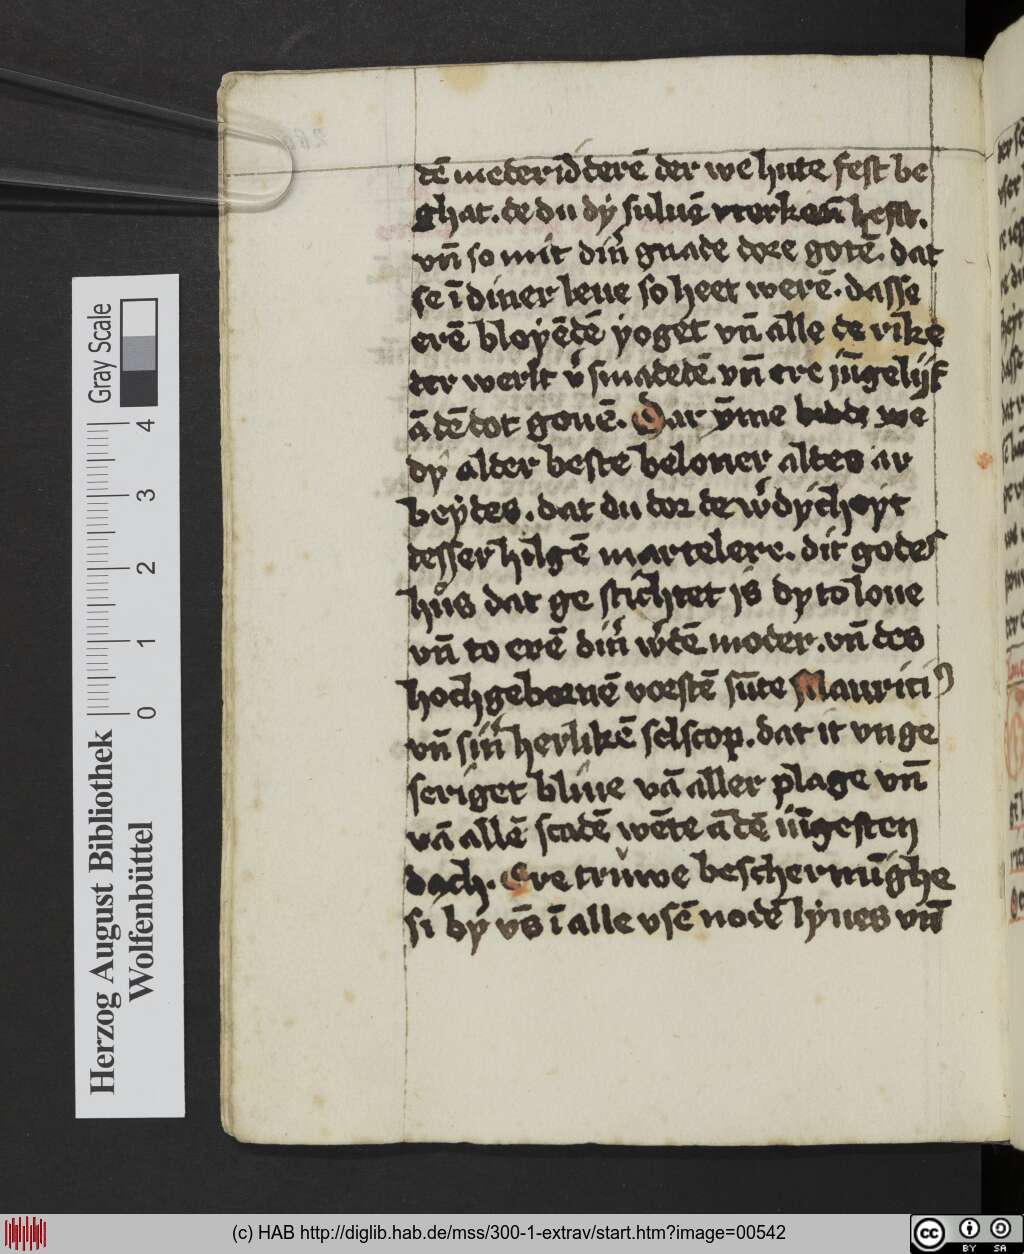 dē mederīd derē der we hute fest be
ghat. de du dȳ suluē hefst.
vn̄ so mit din̄ gnade dore gotē. dat
se ī diner leue so heet werē. dasse
erē bloyēdē yoget vn̄ alle de rike
der werlt v̾smadedē. vn̄ ere jūgelijk
ā dē dot gouē. Dar ȳme bidde we
dy alder beste beloner alles ar
beydes. dat du dor de w̾dicheyt
desser hilgē martelere. dit godes
hus dat ge stichtet is dy to loue
vn̄ to erē din̄ w̾dē moder. vn̄ des
hochgebornē vorstē sūte Mauriciꝰ
vn̄ sin̄ herlikē selscop. dat it vnge
seriget bliue vā aller plage vn̄
vā allē scadē wēte ā dē iūgesten
dach. Ere truwe beschermūghe
si by vs̄ ī alle vsē nodē lyues vn̄
Herzog August Bibliothek
Wolfenbüttel
Gray Scale
0 1 2 3 4
(c) HAB http://diglib.hab.de/mss/300-1-extrav/start.htm?image=00542
cc BY SA